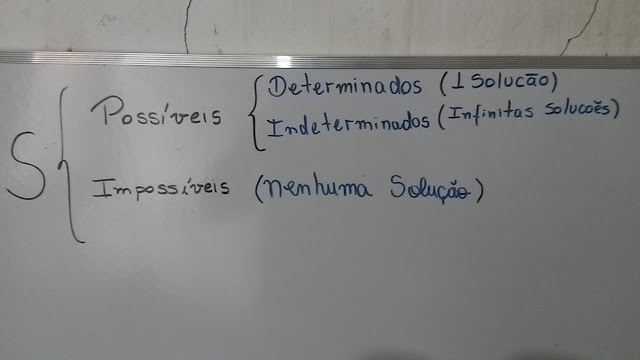 S { Possíveis { Determinados (1 Solucão)
Indeterminados (Infinitas solucões)
Impossíveis (nenhuma Solução)